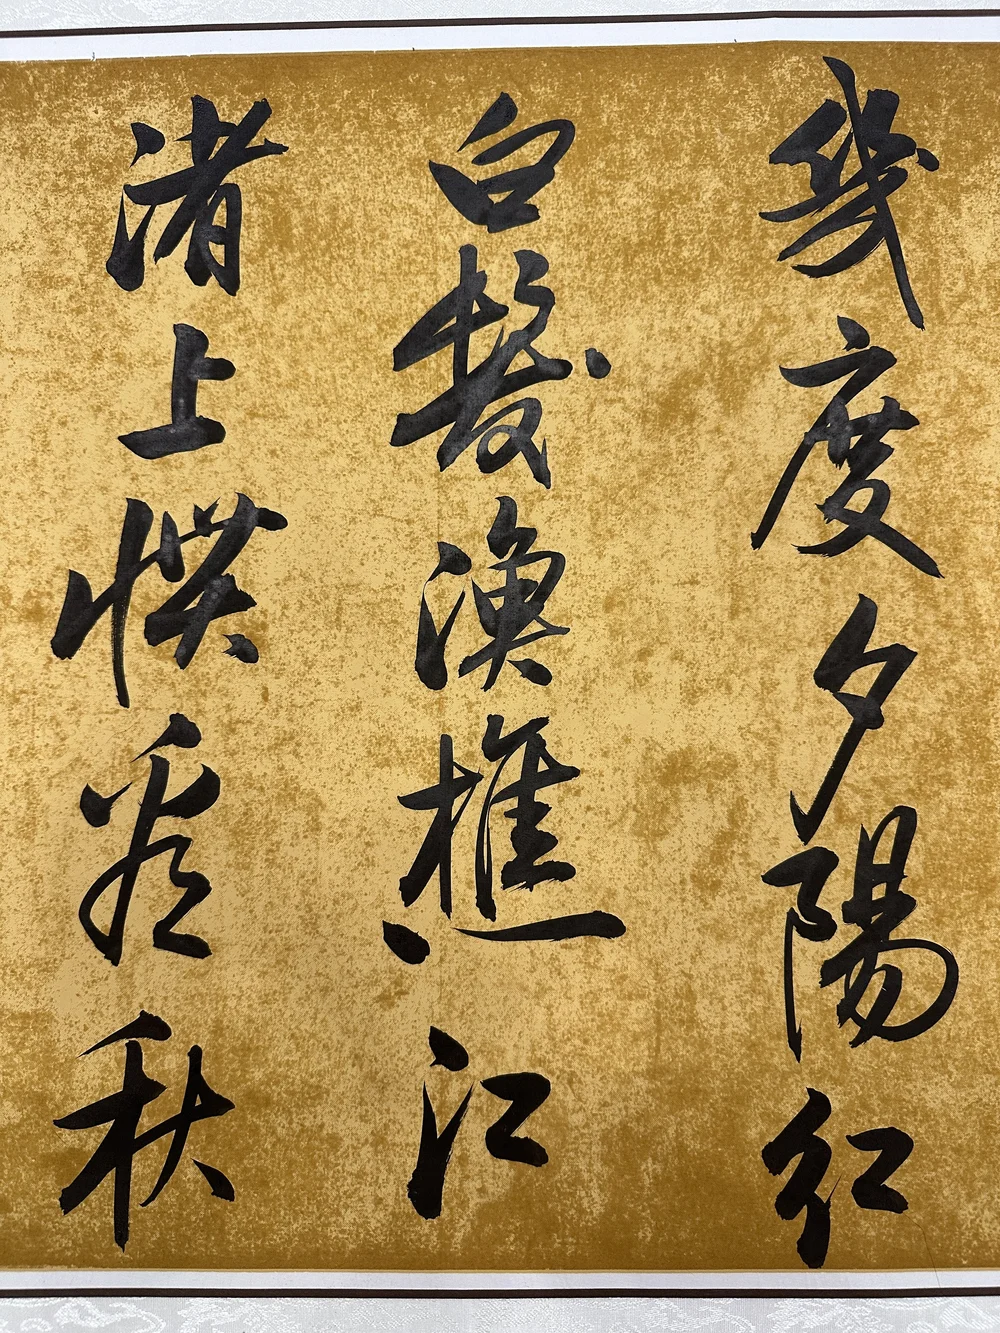 幾度夕陽紅
白髮漁樵江
渚上慣看秋